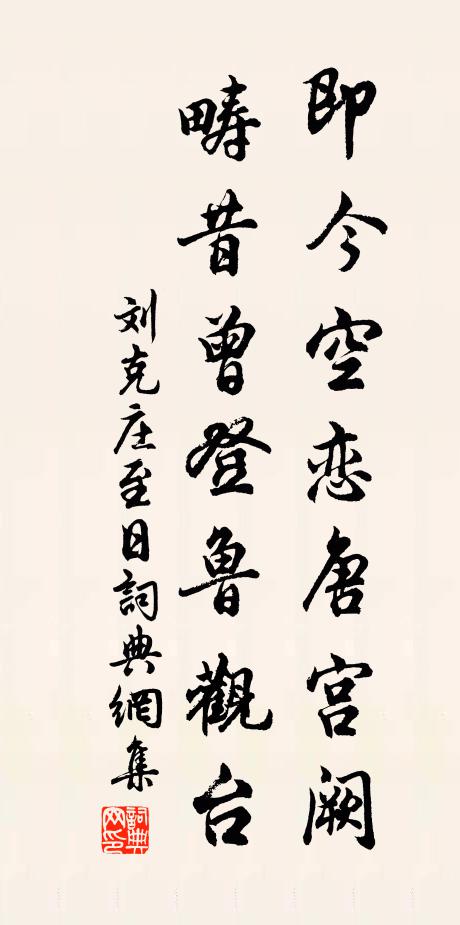 即今空恋唐宫阙
畴昔曾登鲁觀台
刘克庄至日詞典網集
詞典網印